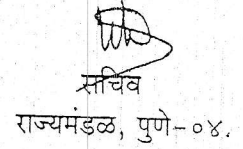 सचिव
राज्यमंडळ, पुणे-०४.